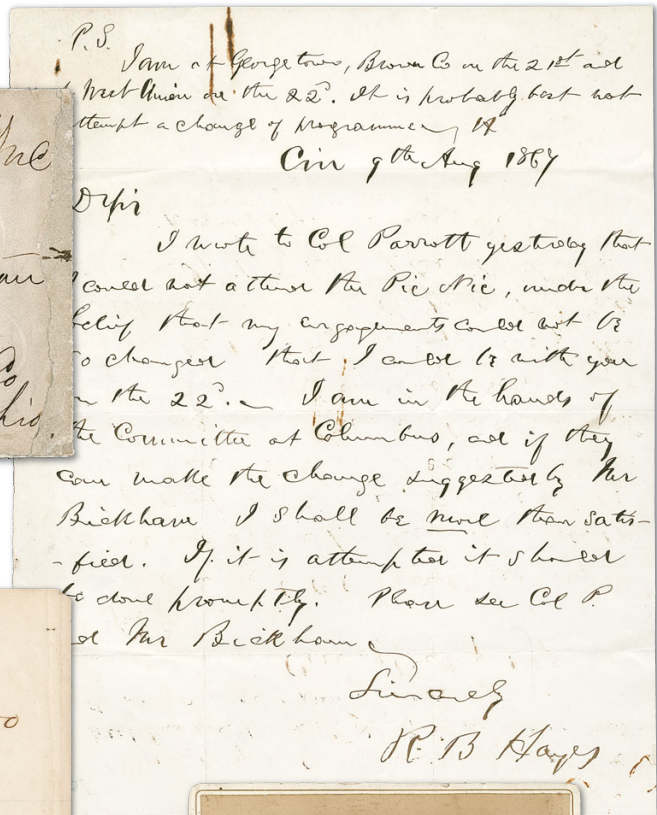 P.S.
I am at Georgetown, Brown Co on the 21st and
West Union on the 22d. It is probably best not
ttempt a change of programme H
Cin 9th Aug 1867
D Sir
I wrote to Col Parrott yesterday that
I could not attend the Pic Nic, under the
belief that my engagements could not be
so changed that I could be with you
on the 22d. I am in the hands of
the Committee at Columbus, and if they
can make the change suggested by Mr
Bickham I shall be more than satis-
-fied. If it is attempted it should
be done promptly. Please see Col P.
nd Mr Bickham
Sincerely
R. B Hayes